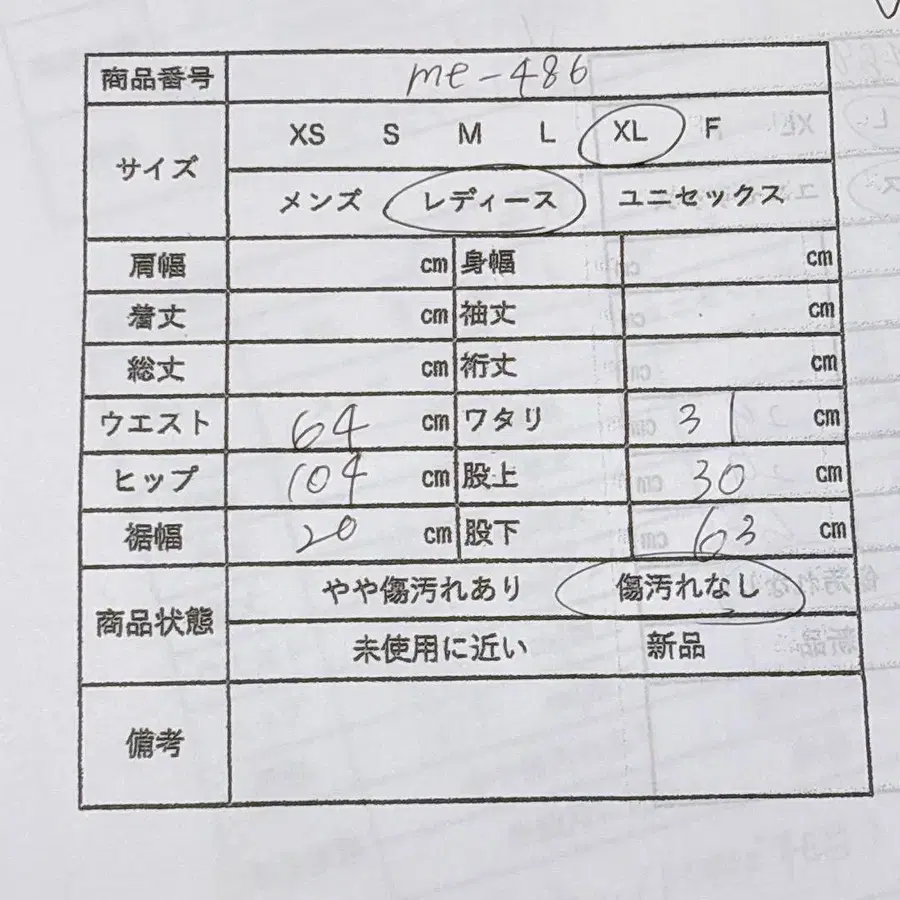 商品番号 me-486
サイズ XS S M L XL F
メンズ レディース ユニセックス
肩幅 cm 身幅 cm
着丈 cm 袖丈 cm
総丈 cm 裄丈 cm
ウエスト 64 cm ワタリ 31 cm
ヒップ 104 cm 股上 30 cm
裾幅 20 cm 股下 63 cm
商品状態 やや傷汚れあり 傷汚れなし
未使用に近い 新品
備考